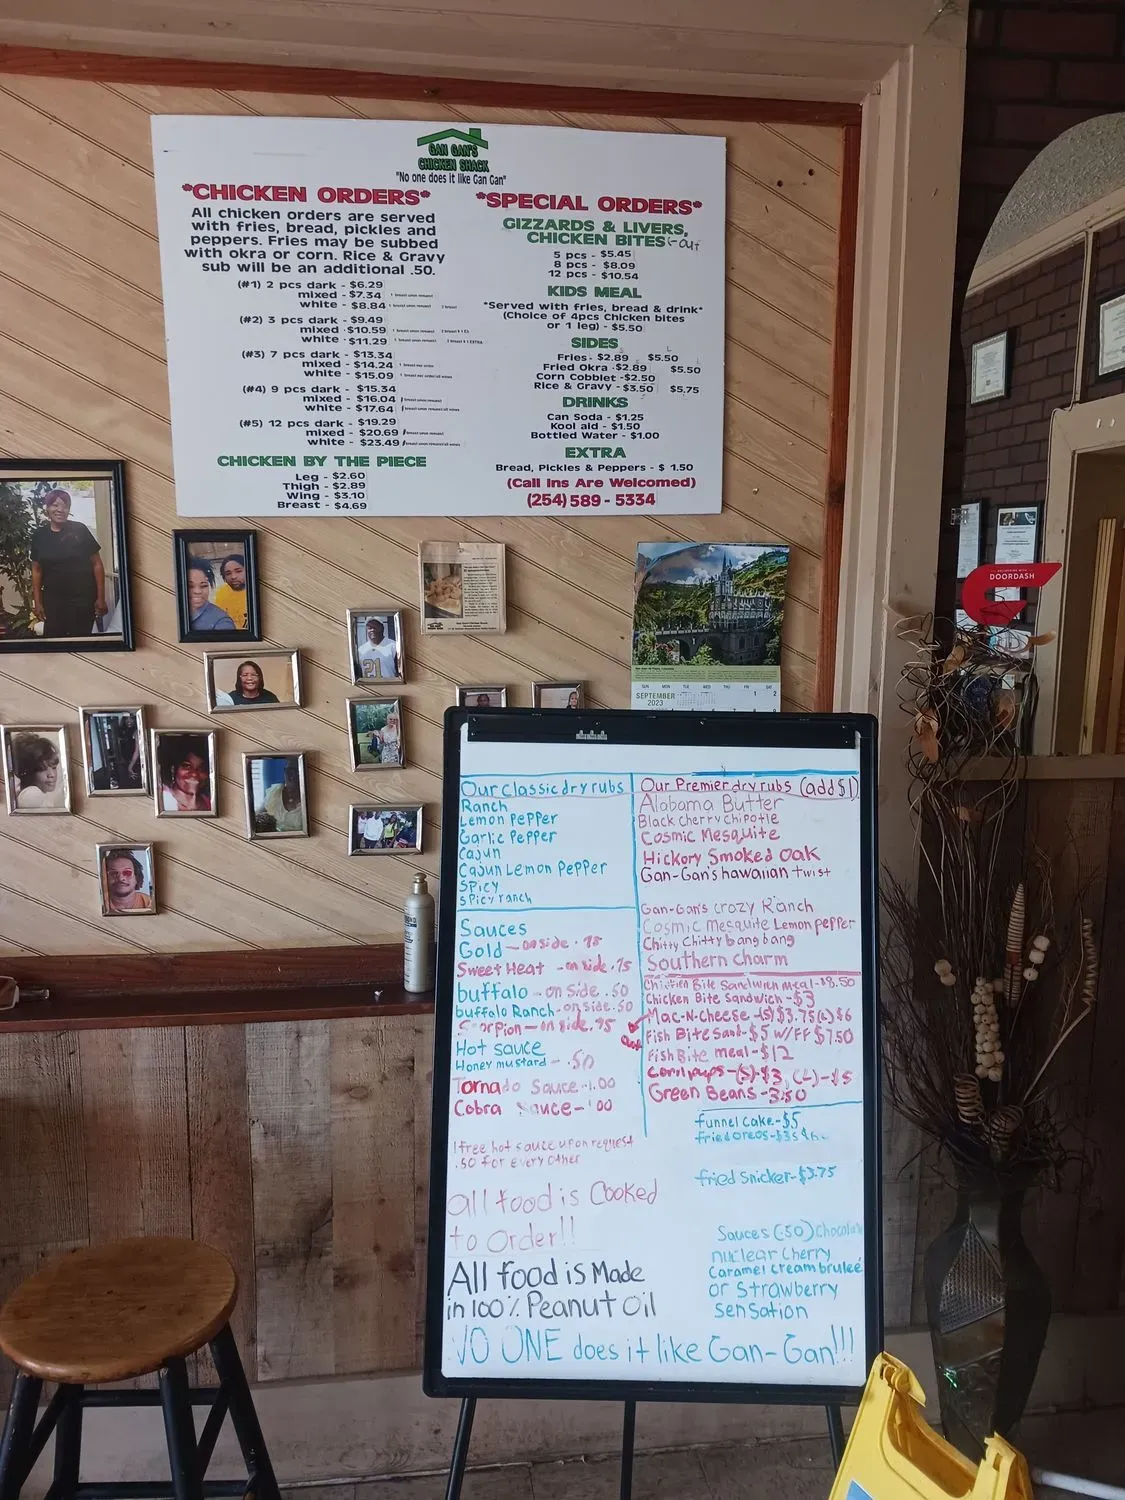 GAN GAN'S
CHICKEN SHACK
"No one does it like Gan Gan"
*CHICKEN ORDERS*
All chicken orders are served
with fries, bread, pickles and
peppers. Fries may be subbed
with okra or corn. Rice & Gravy
sub will be an additional .50.
(#1) 2 pcs dark - $6.29
mixed - $7.34
white - $8.84
(#2) 3 pcs dark - $9.49
mixed - $10.59
white - $11.29
(#3) 7 pcs dark - $13.34
mixed - $14.24
white - $15.09
(#4) 9 pcs dark - $15.34
mixed - $16.04
white - $17.64
(#5) 12 pcs dark - $19.29
mixed - $20.69
white - $23.49
CHICKEN BY THE PIECE
Leg - $2.60
Thigh - $2.89
Wing - $3.10
Breast - $4.69
*SPECIAL ORDERS*
GIZZARDS & LIVERS,
CHICKEN BITES -out
5 pcs - $5.45
8 pcs - $8.09
12 pcs - $10.54
KIDS MEAL
*Served with fries, bread & drink*
(Choice of 4pcs Chicken bites
or 1 leg) - $5.50
SIDES
Fries - $2.89 $5.50
Fried Okra - $2.89 $5.50
Corn Cobblet - $2.50
Rice & Gravy - $3.50 $5.75
DRINKS
Can Soda - $1.25
Kool aid - $1.50
Bottled Water - $1.00
EXTRA
Bread, Pickles & Peppers - $ 1.50
(Call Ins Are Welcomed)
(254) 589 - 5334
SEPTEMBER
2023
DOORDASH
Our Classic dry rubs
Ranch
Lemon Pepper
Garlic Pepper
Cajun
Cajun Lemon Pepper
Spicy
Spicy ranch
Sauces
Gold - on side .75
Sweet Heat - on side .75
buffalo - on side .50
buffalo Ranch - on side .50
Scorpion - on side .75
Hot sauce
Honey mustard - .50
Tornado Sauce - 1.00
Cobra Sauce - 00
1 free hot sauce upon request
.50 for every other
all food is Cooked
to Order!!
All food is Made
in 100% Peanut oil
NO ONE does it like Gan-Gan!!!
Our Premier dry rubs (add $1)
Alabama Butter
Black cherry chipotle
Cosmic Mesquite
Hickory Smoked Oak
Gan-Gan's hawaiian twist
Gan-Gan's crazy Ranch
Cosmic Mesquite Lemon pepper
Chitty Chitty bang bang
Southern Charm
Chicken Bite Sandwich meal - $8.50
Chicken Bite Sandwich - $3
Mac-N-Cheese - (S) $3.75 (L) $6
out
Fish Bite Sand - $5 w/FF $7.50
Fish Bite meal - $12
Corn pups - (S) - $3, (L) - $5
Green Beans - 3.50
funnel cake - $5
fried oreos
fried Snicker - $3.75
Sauces (.50) Chocolate
nuclear Cherry
Caramel cream brulee
or Strawberry
Sensation